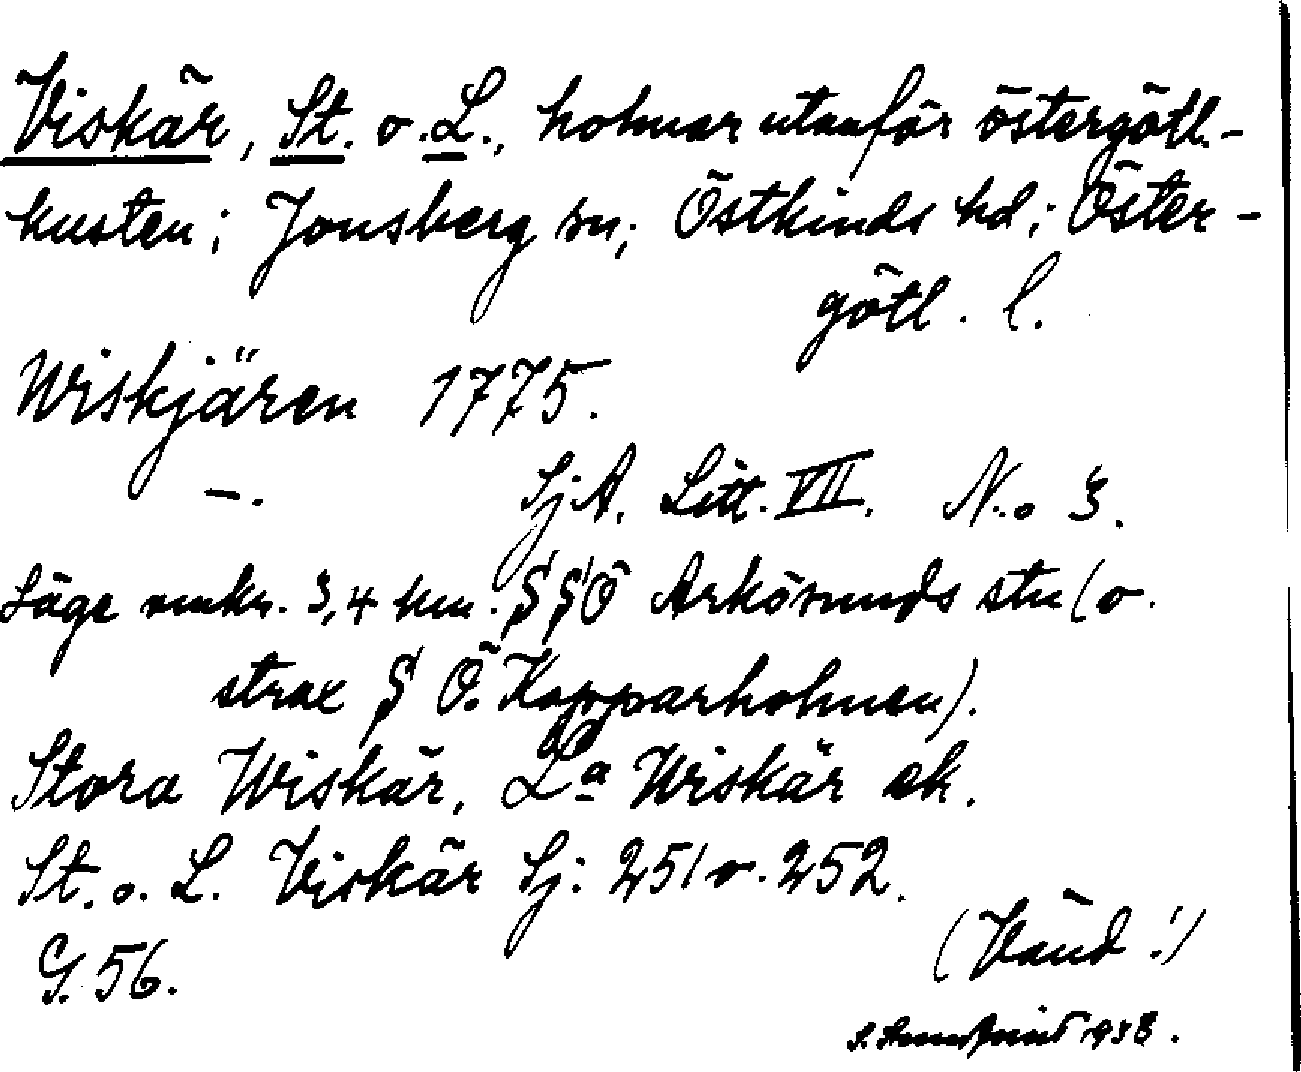 Viskär, St. o. L., holmar utanför östergötl.-
kusten; Jonsberg sn; Östkinds hd; Öster-
götl. l.
Wiskjären 1775.
—. SjA. Litt. VII. N.o 3.
Läge omkr. 3,4 km. S S Ö Arkösunds stn (o.
strax S Ö. Kopparholmen).
Stora Wiskär, La Wiskär ek.
St. o. L. Viskär Sj: 251 o. 252.
G. 56.
(Vänd!)
1938.